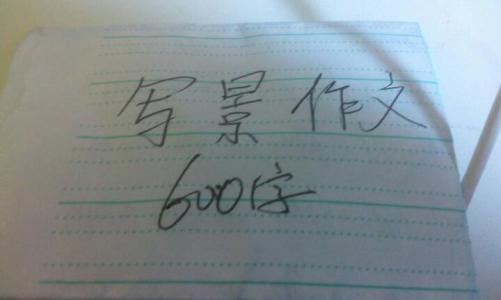 写景作文
600字